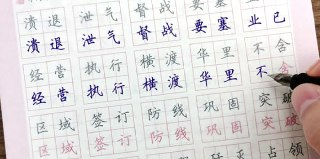 溃退 泄气 督战 要塞 业已
溃退 泄气 督战 要塞 业已
经营 执行 横渡 华里 不含
经营 执行 横渡 华里 不
区域 签订 防线 巩固 突破
区域 签订 防线 巩固 突
占领